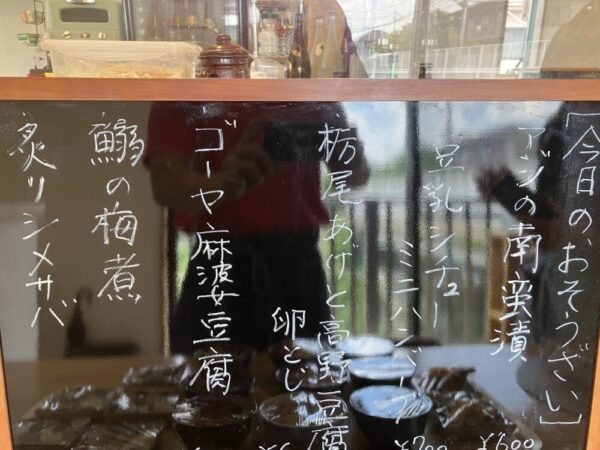 [今日のおそうざい]
アジの南蛮漬
¥600
豆乳シチュー
ミニハンバーグ
¥700
栃尾あげと高野豆腐
卵とじ
ゴーヤ麻婆豆腐
鰯の梅煮
炙りシメサバ